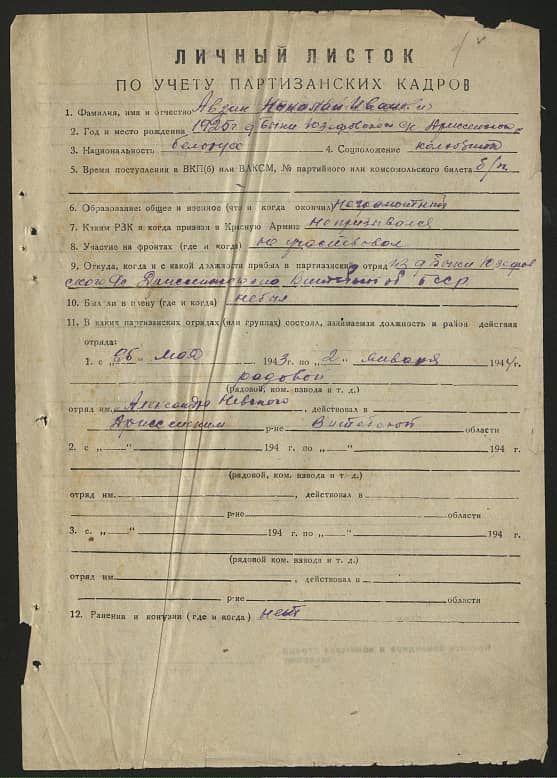 ЛИЧНЫЙ ЛИСТОК
ПО УЧЕТУ ПАРТИЗАНСКИХ КАДРОВ
1. Фамилия, имя и отчество Авзин
2. Год и место рождения 1925г д Быки Юзефовского с/с
3. Национальность белорус 4. Соцположение
5. Время поступления в ВКП(б) или ВЛКСМ, № партийного или комсомольского билета б/п
6. Образование: общее и военное (что и когда окончил)
7. Каким РЗК и когда призван в Красную Армию не призывался
8. Участие на фронтах (где и когда) не участвовал
9. Откуда, когда и с какой должности прибыл в партизанский отряд из д Быки Юзефов
ского с/с БССР
10. Был ли в плену (где и когда) не был
11. В каких партизанских отрядах (или группах) состоял, занимаемая должность и район действия
отряда:
1. с „26" мая 1943г. по „2" января 1944г.
рядовой
(рядовой, ком. взвода и т. д.)
отряд им. Александра Невского, действовал в
р-не Витебской области
2. с „ " 194 г. по „ " 194 г.
(рядовой, ком. взвода и т. д.)
отряд им. , действовал в
р-не области
3. с. „ " 194 г. по „ " 194 г.
(рядовой, ком. взвода и т. д.)
отряд им. , действовал в
р-не области
12. Ранения и контузии (где и когда) нет